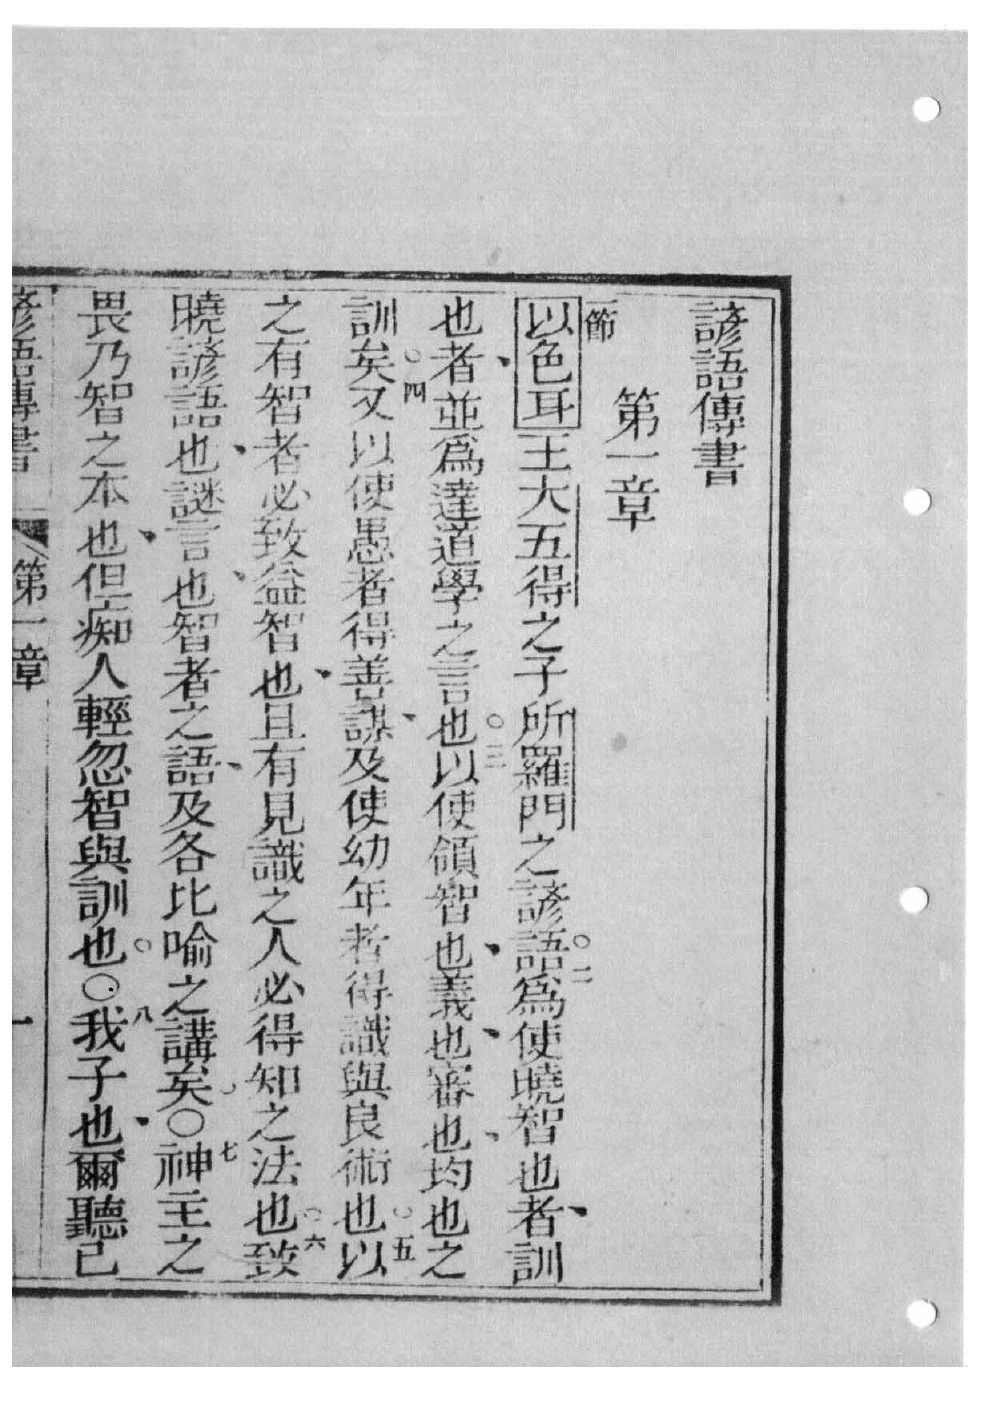 諺語傳書
第一章
一節
以色耳王大五得之子所羅門之諺語○二爲使曉智也者訓
也者並爲達道學之言也○三以使領智也義也審也均也之
訓矣○四又以使愚者得善謀及使幼年者得識與良術也○五以
之有智者必致益智也且有見識之人必得知之法也○六致
曉諺語也謎言也智者之語及各比喻之講矣○七神主之
畏乃智之本也但痴人輕忽智與訓也○○八我子也爾聽己
諺語傳書 第一章 一